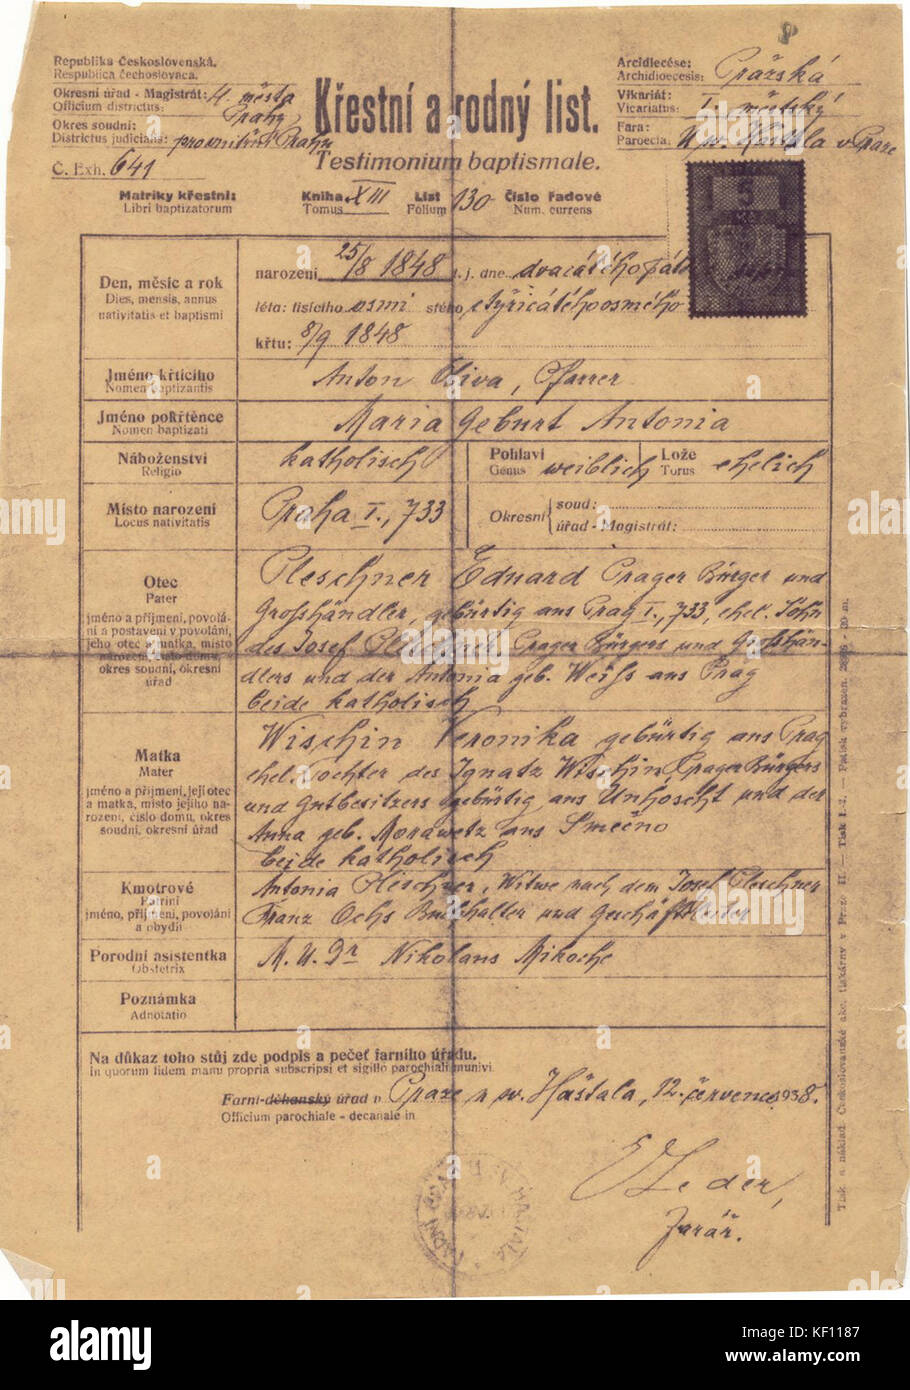 Republika Československá.
Respublica čechoslovaca.
Okresní úřad - Magistrát: hl. města
Officium districtus: Prahy
Okres soudní:
Districtus judicialis: pro vnitřní Prahu
Č. Exh. 641
Křestní a rodný list.
Testimonium baptismale.
Arcidiecése: Pražská
Archidioecesis:
Vikariát: I. městský
Vicariatus:
Fara: U sv. Haštala v Praze
Paroecia:
Matriky křestní:
Libri baptizatorum
Kniha XIII List 130 Číslo řadové
Tomus Folium Num. currens
Den, měsíc a rok
Dies, mensis, annus
nativitatis et baptismi
narození 25/8 1848 t. j. dne dvacátého pát
léta: tisícího osmi stého, čtyřicátéhoosmého
křtu: 8/9 1848
Jméno křticího
Nomen baptizantis
Anton Oliva, Pfarrer
Jméno pokřtěnce
Nomen baptizati
Maria Geburt Antonia
Náboženství
Religio
katholisch
Pohlaví
Genus weiblich
Lože
Torus ehelich
Místo narození
Locus nativitatis
Praha I., 733
Okresní soud:
úřad - Magistrát:
Otec
Pater
jméno a příjmení, povolá-
ní a postavení v povolání,
jeho otec a matka, místo
narození, číslo domu,
okres soudní, okresní
úřad
Pleschner Eduard Prager Bürger und
Großhändler, gebürtig aus Prag I., 733, ehel. Sohn
des Josef Pleschner, Prager Bürgers und Großhän-
dlers und der Antonia geb. Weiss aus Prag
beide katholisch
Matka
Mater
jméno a příjmení, její otec
a matka, místo jejího na-
rození, číslo domu, okres
soudní, okresní úřad
Wischin Veronika gebürtig aus Prag
ehel. Tochter des Ignatz Wischin, Prager Bürgers
und Gutbesitzers gebürtig aus Unhoscht und der
Anna geb. Morawetz aus Smečno
beide katholisch
Kmotrové
Patrini
jméno, příjmení, povolání
a obydlí
Antonia Pleschner, Witwe nach dem Josef Pleschner
Franz Ochs Buchhalter und Geschäftsleiter
Porodní asistentka
Obstetrix
M. U. Dr Nikolaus Mikoche
Poznámka
Adnotatio
Na důkaz toho stůj zde podpis a pečeť farního úřadu.
In quorum fidem manu propria subscripsi et sigillo parochiali munivi.
Farní-děkanský úřad v Praze u sv. Haštala, 12. července 1938.
Officium parochiale - decanale in
Leder,
farář.
alamy
Image ID: KF1187
www.alamy.com